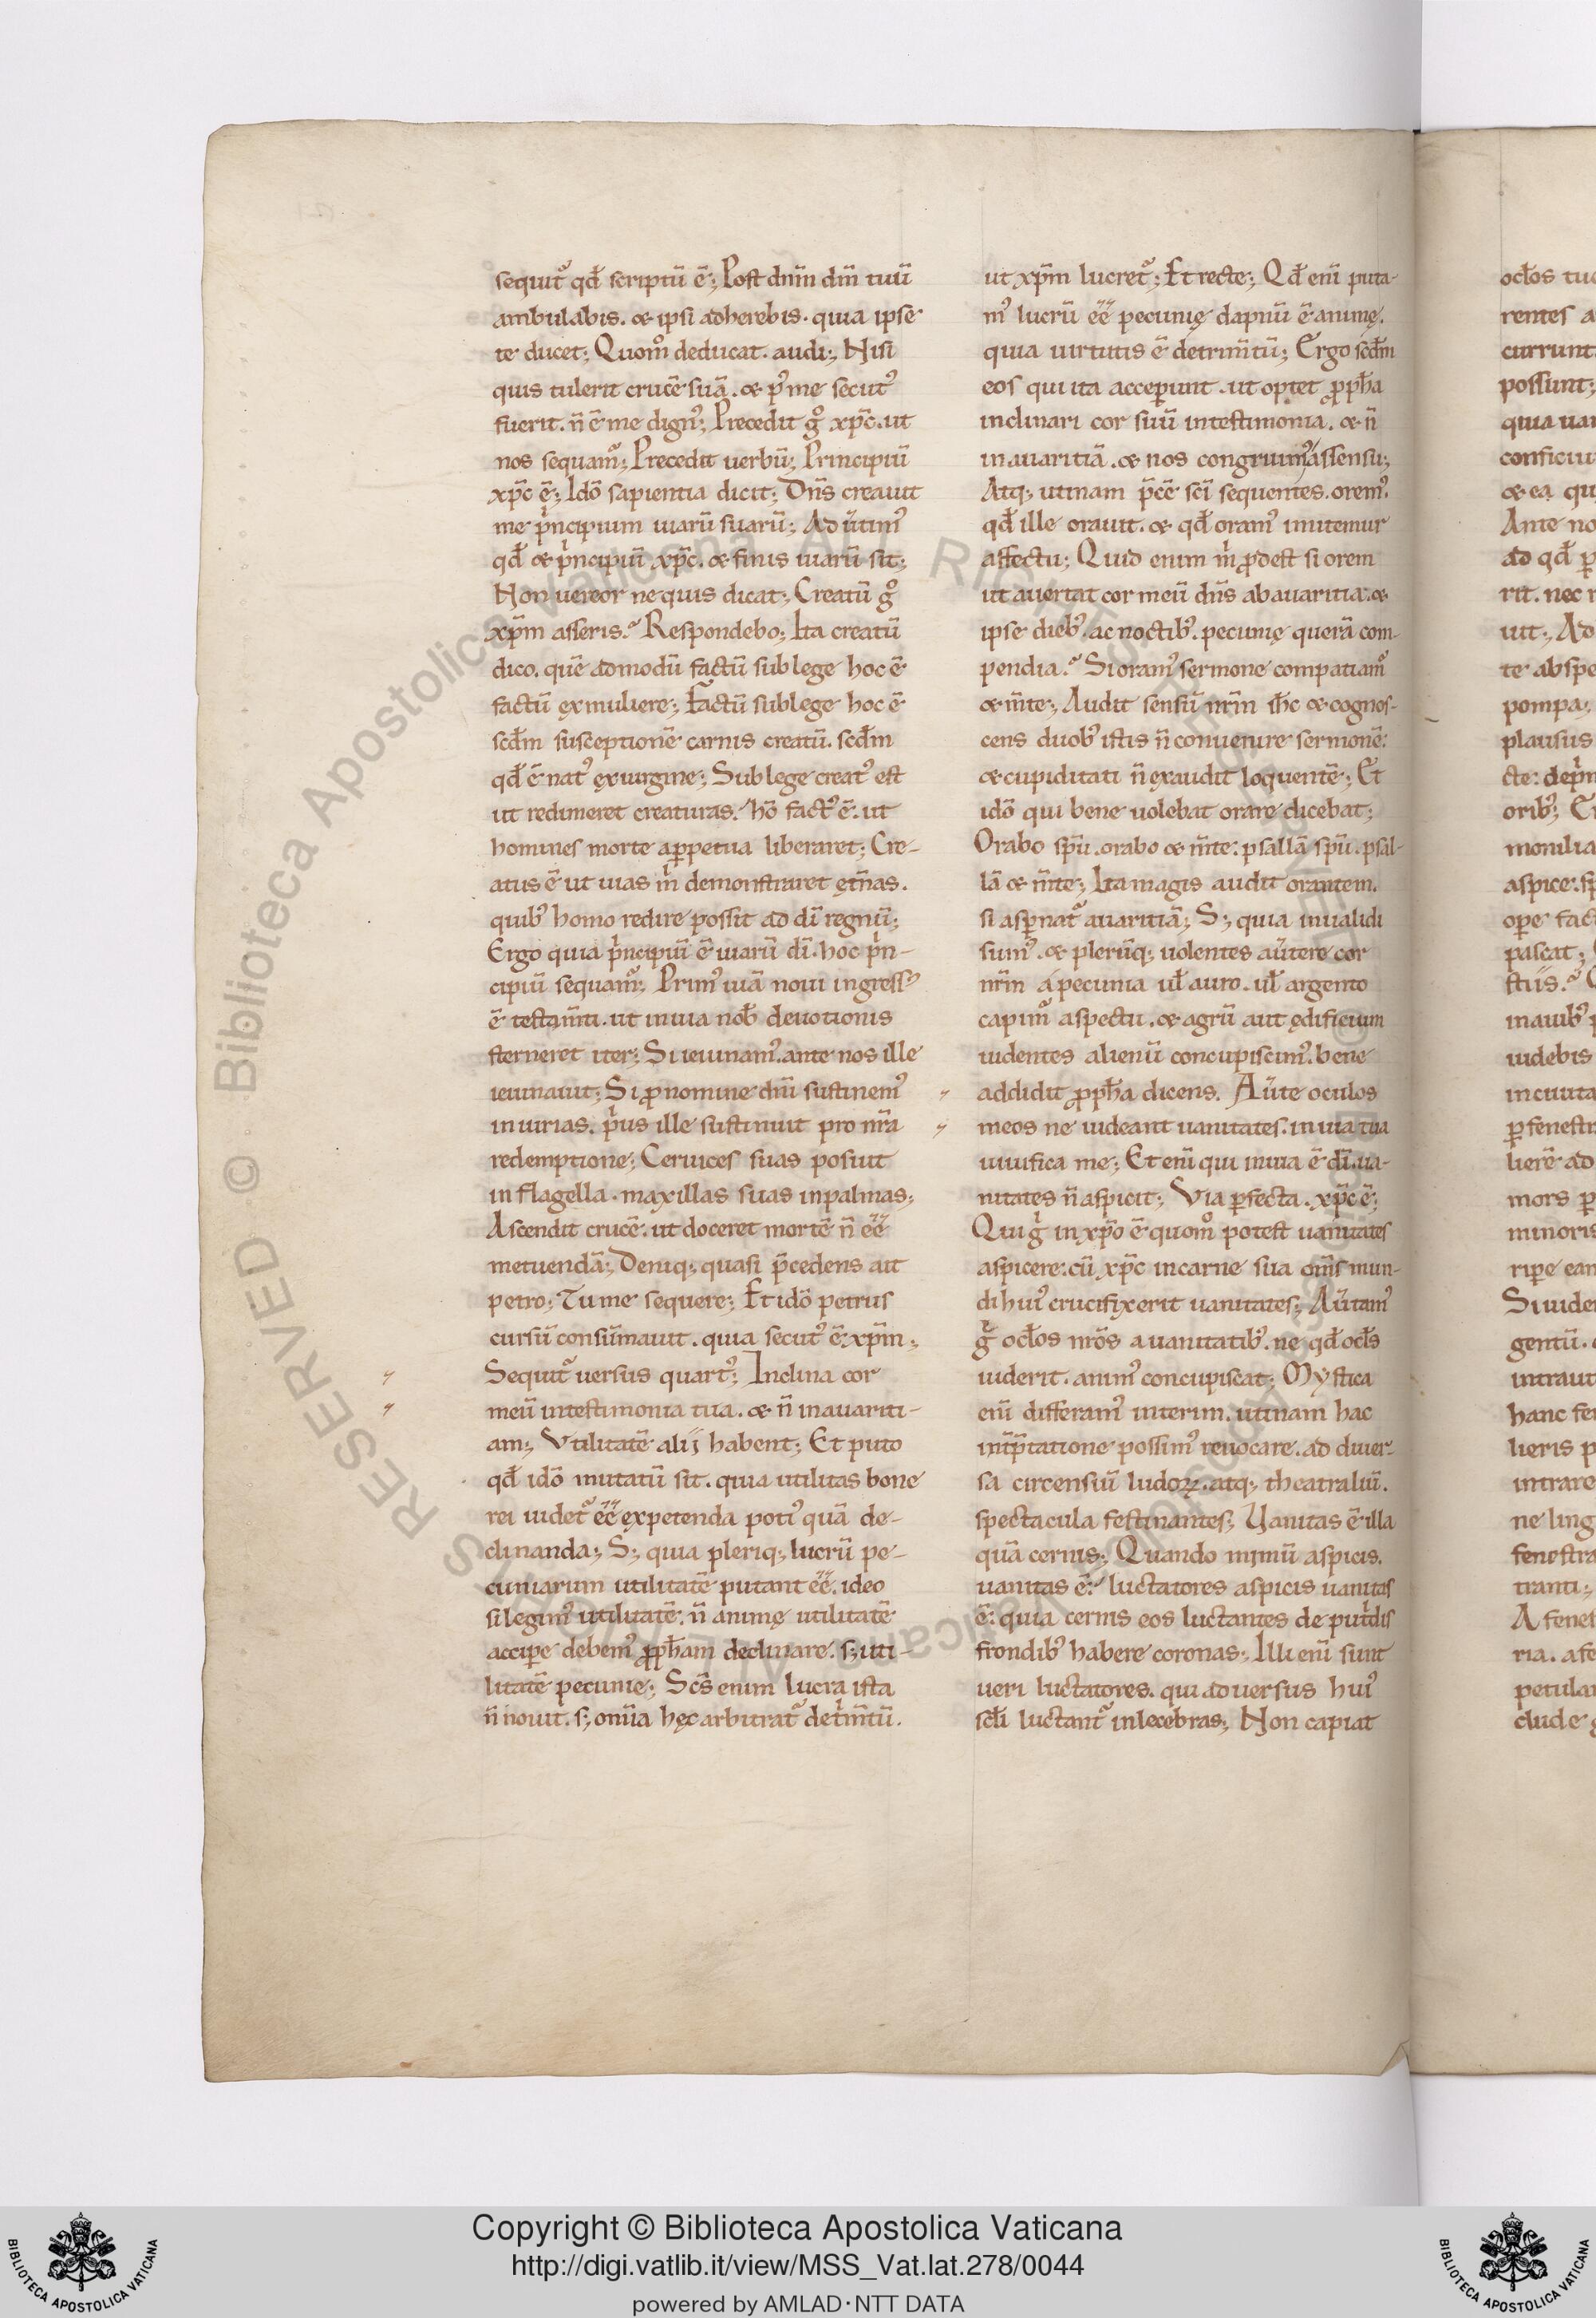 sequit᷑ qd̄ scriptū ē; Post dnm̄ dm̄ tuū
ambulabis. & ipsi adherebis. quia ipse
te ducet; Quom̊ deducat. audi; Nisi
quis tulerit crucē suā. & p᷒ me secut᷒
fuerit. n̄ ē me dign᷒; Precedit gͦ xp̄c. ut
nos sequam᷑; Precedit uerbū; Principiū
xp̄c ē; Idō sapientia dicit; Dn̄s creauit
me pͥncipium uiarū suarū; Ad ūtim᷒
qd̄ & pͥncipiū xp̄c. & finis uiarū sit;
Non uereor ne quis dicat; Creatū gͦ
xp̄m asseris? Respondebo; Ita creatū
dico. quē admodū factū sub lege hoc ē
factū ex muliere; Factū sub lege hoc ē
scd̄m susceptionē carnis creatū. scd̄m
qd̄ ē nat᷒ ex uirgine; Sub lege creat᷒ est
ut redimeret creaturas. hō fact᷒ ē. ut
homines morte a ꝑpetua liberaret; Cre-
atus ē ut uias mͥ demonstraret ęt̄nas.
quib᷒ homo redire possit ad dī regnū;
Ergo quia pͥncipiū ē uiarū dī. hoc pͥn-
cipiū sequam᷑; Prim᷒ uiā noui ingress᷒
ē testam̄ti. ut in uia nob̄ deuotionis
sterneret iter; Si ieiunam᷒. ante nos ille
ieiunauit; Si ꝓ nomine dn̄i sustinem᷒
iniurias. pͥus ille sustinuit pro nr̄a
redemptione; Ceruices suas posuit
in flagella. maxillas suas in palmas;
Ascendit crucē. ut doceret mortē n̄ ēē
metuendā; Deniq; quasi p̄cedens ait
petro; Tu me sequere; Et idō petrus
cursū consūmauit. quia secut᷒ ē xp̄m;
Sequit᷑ uersus quart᷒; Inclina cor
meū in testimonia tua. & n̄ in auariti-
am; Vtilitatē alij habent; Et puto
qd̄ idō mutatū sit. quia utilitas bone
rei uidet᷑ ēē expetenda poti᷒ quā de-
clinanda; S; quia pleriq; lucrū pe-
cuniarum utilitatē putant ēē. ideo
si legim᷒ utilitatē. n̄ animę utilitatē
accipe debem᷒ ꝓph̄am declinare. s; uti-
litatē pecunie; Scs̄ enim lucra ista
n̄ nouit. s; omīa hęc arbitrat᷑ detͥm̄tū.
ut xp̄m lucret᷑; Et recte; Qd̄ enī puta-
m᷒ lucrū ēē pecunię dapnū ē animę.
quia uirtutis ē detrim̄tū; Ergo scd̄m
eos qui ita acceꝑunt. ut optet ꝓph̄a
inclinari cor suū in testimonia. & n̄
in auaritiā. & nos congruim᷒ assensu;
Atq; utinam p̄cē scī sequentes. orem᷒.
qd̄ ille orauit. & qd̄ oram᷒ imitemur
affectu; Quid enim mͥ ꝓdest si orem
ut auertat cor meū dn̄s ab auaritia. &
ipse dieb᷒ ac noctib᷒. pecunię querā com-
pendia? Si oram᷒ sermone compatiam᷑
& m̄te; Audit sensū nr̄m ih̄c & cognos-
cens duob᷒ istis n̄ conuenire sermonē:
& cupiditati n̄ exaudit loquentē; Et
idō qui bene uolebat orare dicebat;
Orabo sp̄u. orabo & m̄te: psallā sp̄u. psal-
lā & m̄te; Ita magis audit orantem.
si asꝑnat᷑ auaritiā; S; quia inualidi
sum᷒. & plerūq; uolentes aūtere cor
nr̄m á pecunia ul̄ auro. ul̄ argento
capim᷑ aspectu. & agrū aut ędificium
uidentes alienū concupiscim᷒. bene
addidit ꝓph̄a dicens. Aūte oculos
meos ne uideant uanitates. in uia tua
uiuifica me; Et enī qui in uia ē dī. ua-
nitates n̄ aspicit; Via ꝑfecta. xp̄c ē;
Qui gͥ in xp̄o ē quom̊ potest uanitates
aspicere: cū xp̄c in carne sua om̄s mun-
di hui᷒ crucifixerit uanitates; Aūtam᷒
gͥ ocl̄os nr̄os a uanitatib᷒. ne qd̄ ocl̄s
uiderit. anim᷒ concupiscat; Mystica
enī differam᷒ interim. utinam hac
int̄p̄tatione possim᷒ reuocare. ad diuer-
sa circensiū ludoꝝ. atq; theatraliū.
spectacula festinantes; Vanitas ē illa
quā cernis; Quando mimū aspicis.
uanitas ē: luctatores aspicis uanitas
ē: quia cernis eos luctantes de putͥdis
frondib᷒ habere coronas; Illi enī sunt
ueri luctatores. qui aduersus hui᷒
scl̄i luctant᷑ inlecebras; Non capiat
ocl̄os tuo
rentes a
currunt
possunt;
quia uan
conficiu
& ea qu
Ante no
ad qd̄ ꝑ
rit. nec n
uit; Ad
te ab spe
pompa;
plausus
cte: depͥm
orib᷒; Er
monilia
aspice: sp
oꝑe fact
pascat;
stiis?
in auib᷒ p
uidebis
in ciuita
ꝑ fenestr
lierē ad
mors ꝑ
minoris
riꝑe eam
Si uide
gentū.
intraut
hanc fe
lieris p
intrare
ne ling
fenestra
tranti;
A fenes
ria. a fe
petulan
clude g
Copyright © Biblioteca Apostolica Vaticana
http://digi.vatlib.it/view/MSS_Vat.lat.278/0044
powered by AMLAD·NTT DATA
BIBLIOTECA APOSTOLICA VATICANA
BIBLIOTECA APOSTOLICA VATICANA